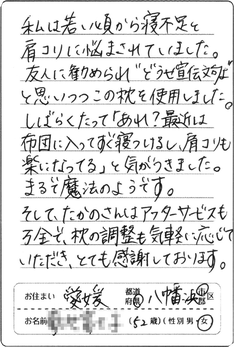 私は若い頃から寝不足と
肩コリに悩まされていました。
友人に勧められ"どうせ宣伝文句だ"
と思いつつこの枕を使用しました。
しばらくたって「あれ?最近は
布団に入ってすぐ寝つけるし、肩コリも
楽になってる」と気がつきました。
まるで魔法のようです。
そして、たかのさんはアフターサービスも
万全で、枕の調整も気軽に応じて
いただき、とても感謝しております。
お住まい 愛媛 都道府県 八幡浜 市区郡
お名前 (52歳)(性別 男・女)